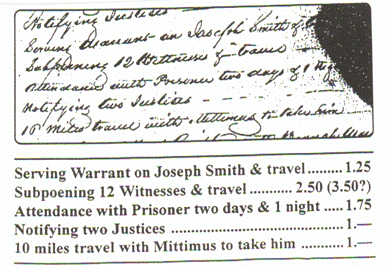 Notifying Justices
Serving Warrant on Joseph Smith &
Subpoening 12 Witnesses & travel
Attendance with Prisoner two days & 1
Notifying two Justices
10 miles travel with Mittimus to take him
Serving Warrant on Joseph Smith & travel ........ 1.25
Subpoening 12 Witnesses & travel .......... 2.50 (3.50?)
Attendance with Prisoner two days & 1 night ..... 1.75
Notifying two Justices ......................................... 1.—
10 miles travel with Mittimus to take him ........... 1.—